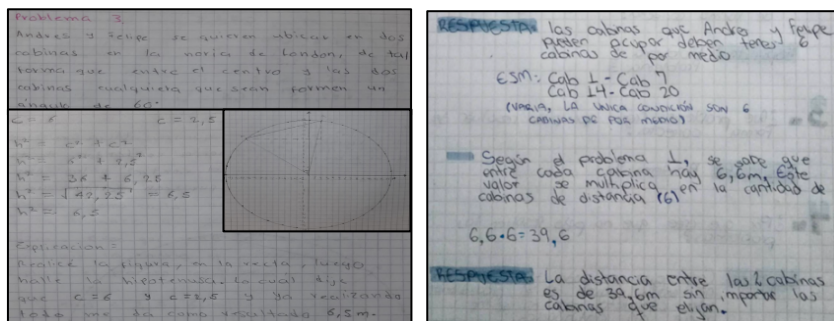 Problema 3.
Andres y Felipe se quieren ubicar en dos
cabinas en la noria de London, de tal
forma que entre el centro y las dos
cabinas cualquiera que sean formen un
ángulo de 60°
c = 6 c = 2,5
h² = c² + c²
h² = 6² + 2,5²
h² = 36 + 6,25
h² = √42,25 = 6,5
h² = 6,5
Explicacion =
Realice la figura, en la recta, luego
halle la hipotenusa, la cual dije
que c=6 y c=2,5 y ya realizando
todo me da como resultado 6,5m.
RESPUESTA: las cabinas que Andres y Felipe
pueden ocupar deben tener 6
cabinas de por medio
Cab 1 - Cab 7
Cab 14 - Cab 20
(VARIA, LA UNICA CONDICIÓN SON 6
CABINAS DE POR MEDIO)
Según el problema 1, se sabe que
entre cada cabina hay 6,6m, Este
valor se multiplica en la cantidad de
cabinas de distancia (6)
6,6 • 6 = 39,6
RESPUESTA: La distancia entre las 2 cabinas
es de 39,6m sin importar las
cabinas que elijan.